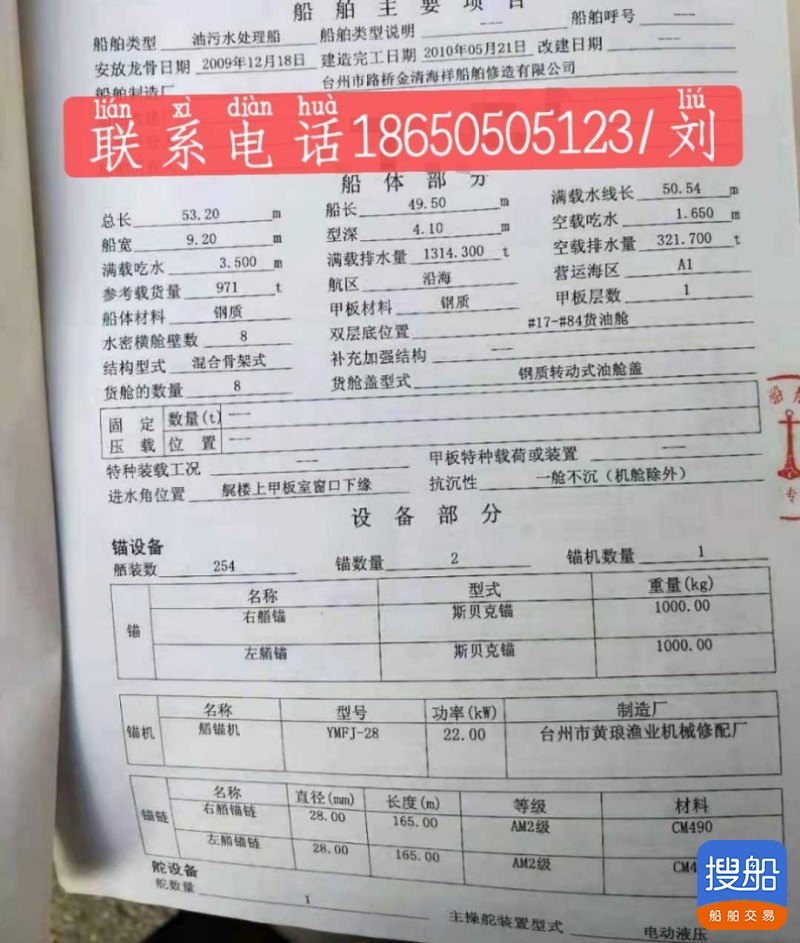 船舶主要项目
船舶类型 油污水处理船 船舶类型说明 --- 船舶呼号 ---
安放龙骨日期 2009年12月18日 建造完工日期 2010年05月21日 改建日期 ---
船舶制造厂 台州市路桥金清海祥船舶修造有限公司
lián xì diàn huà liú
联系电话18650505123/刘
船体部分
总长 53.20 m 船长 49.50 m 满载水线长 50.54 m
船宽 9.20 m 型深 4.10 m 空载吃水 1.650 m
满载吃水 3.500 m 满载排水量 1314.300 t 空载排水量 321.700 t
参考载货量 971 t 航区 沿海 营运海区 A1
船体材料 钢质 甲板材料 钢质 甲板层数 1
水密横舱壁数 8 双层底位置 #17-#84货油舱
结构型式 混合骨架式 补充加强结构 ---
货舱的数量 8 货舱盖型式 钢质转动式油舱盖
固定压载 数量(t) ---
位置 ---
特种装载工况 --- 甲板特种载荷或装置 ---
进水角位置 艉楼上甲板室窗口下缘 抗沉性 一舱不沉（机舱除外）
设备部分
锚设备
舾装数 254 锚数量 2 锚机数量 1
锚 名称 型式 重量(kg)
右艏锚 斯贝克锚 1000.00
左艏锚 斯贝克锚 1000.00
锚机 名称 型号 功率(kW) 制造厂
艏锚机 YMFJ-28 22.00 台州市黄琅渔业机械修配厂
锚链 名称 直径(mm) 长度(m) 等级 材料
右艏锚链 28.00 165.00 AM2级 CM490
左艏锚链 28.00 165.00 AM2级 CM4
舵设备
舵数量 1 主操舵装置型式 电动液压
搜船
船舶交易